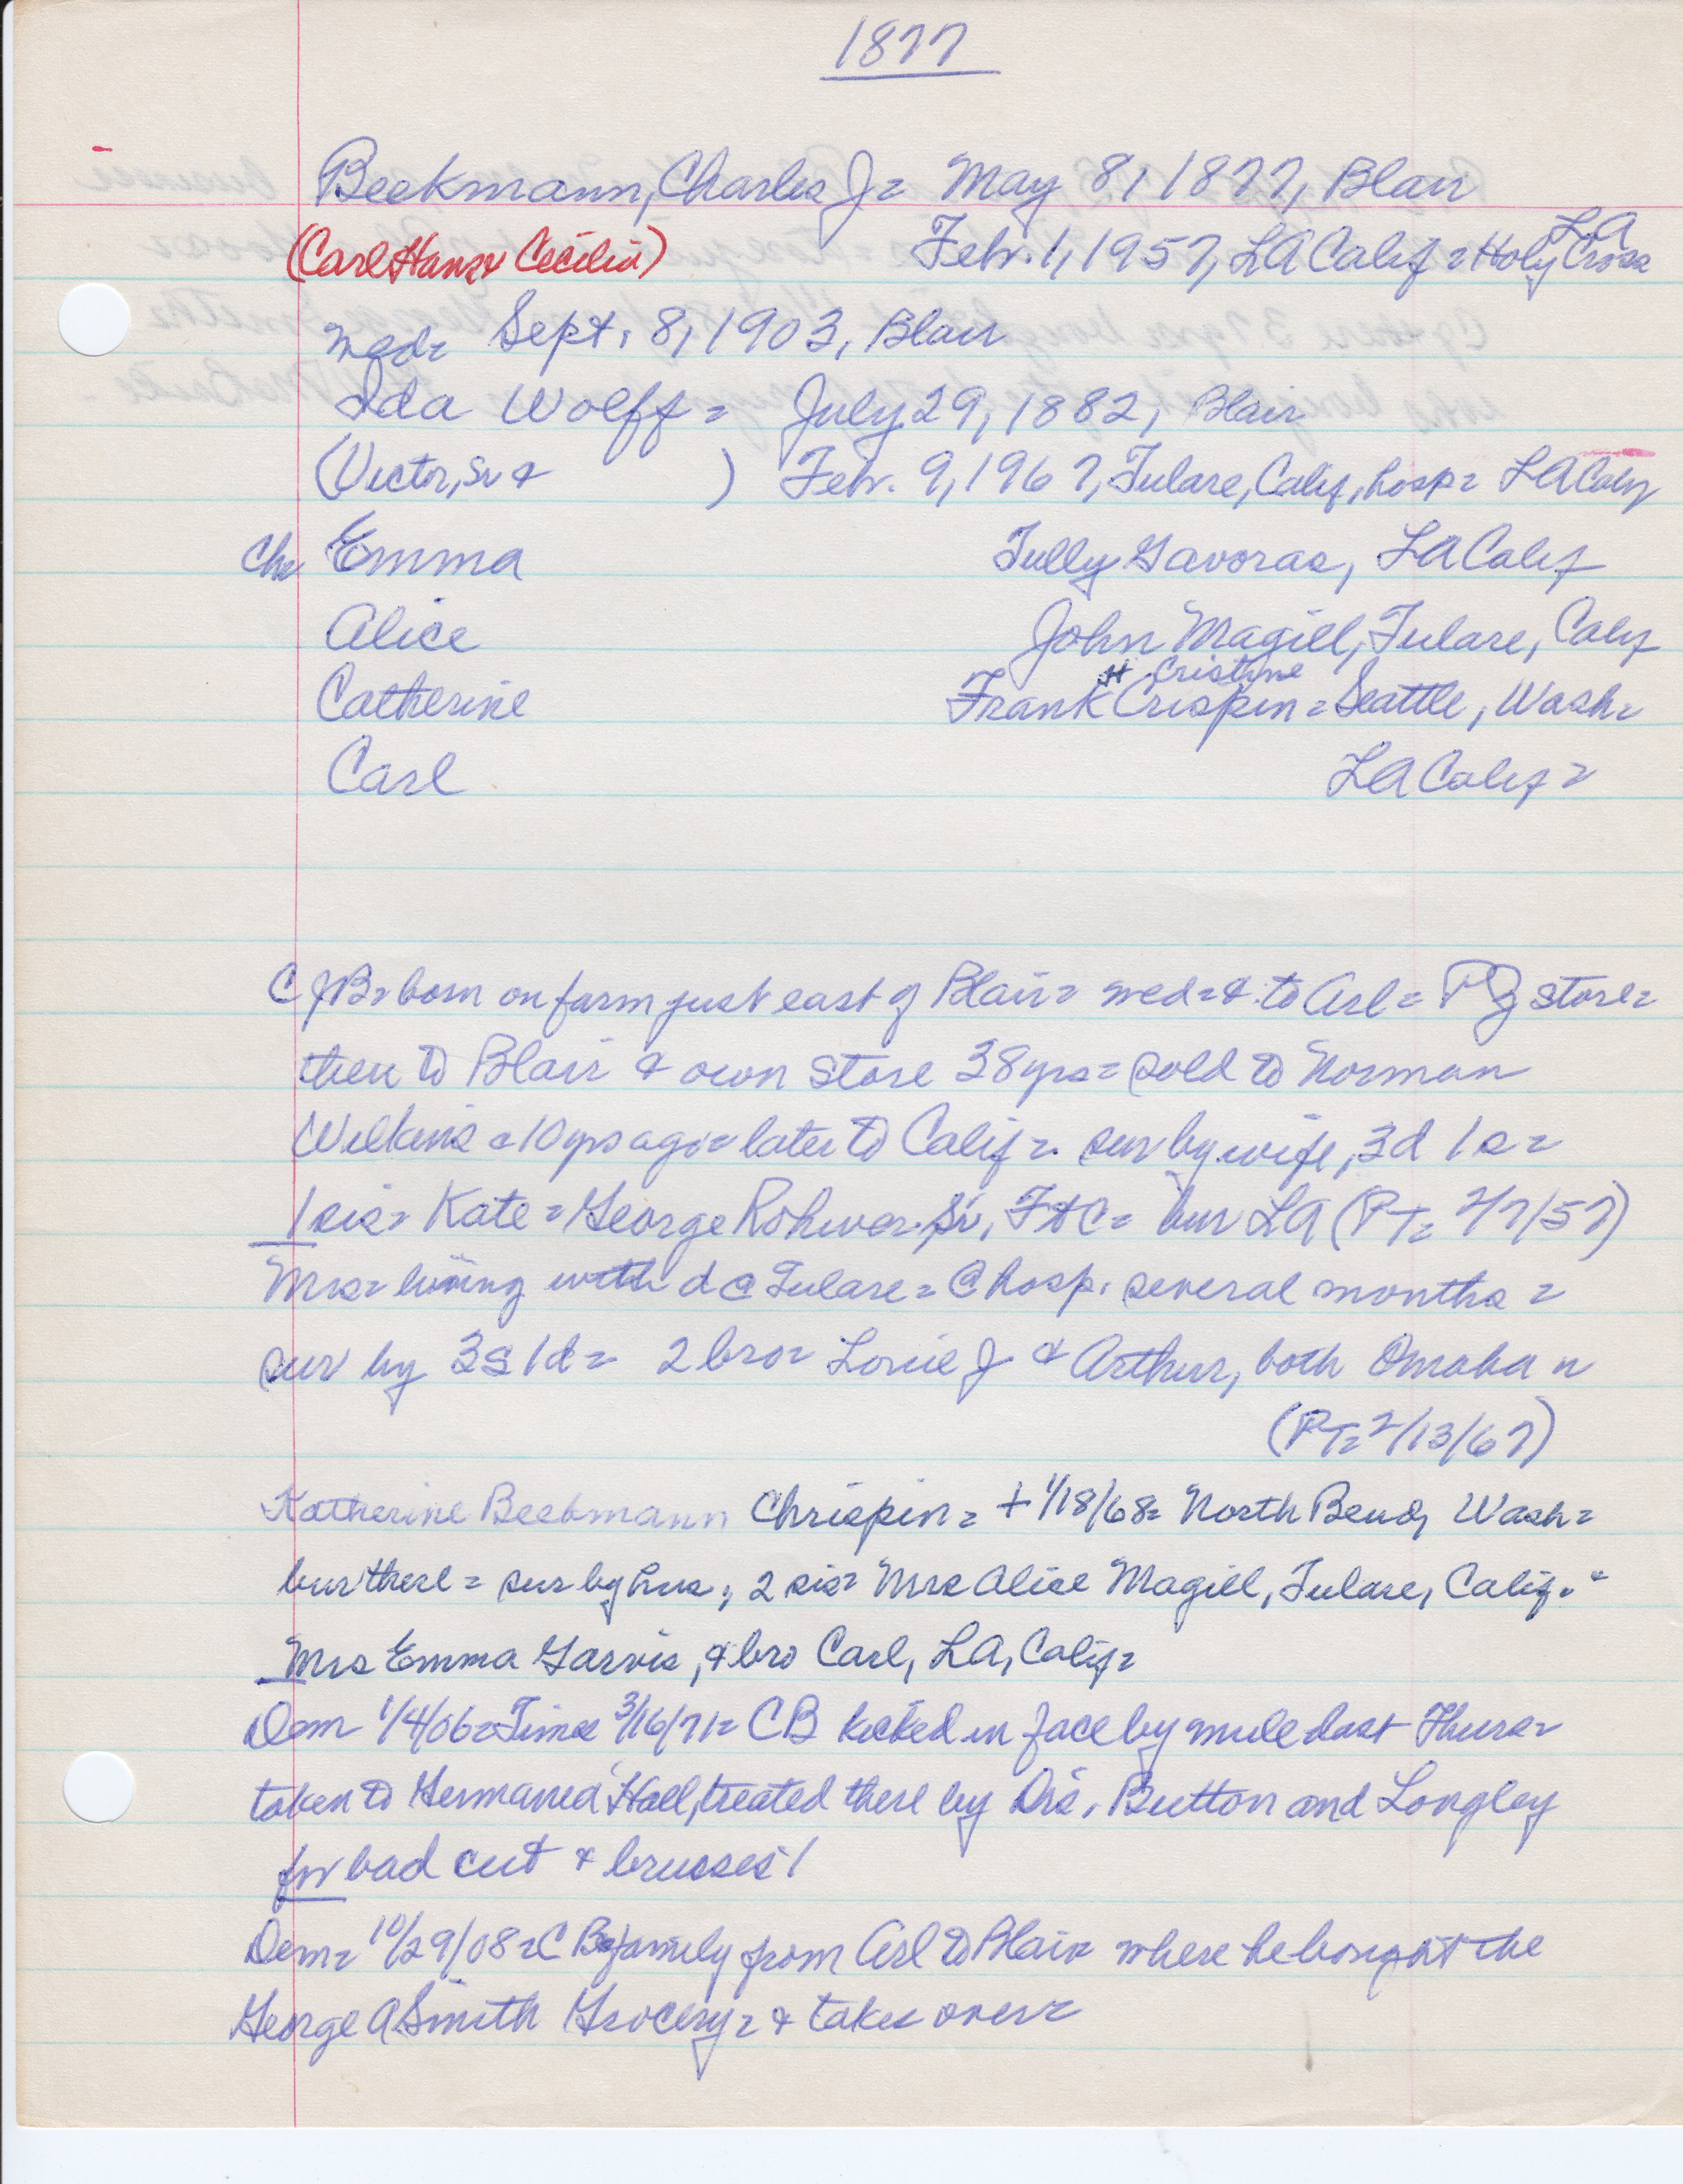 1877
Beekmann, Charles J = May 8, 1877, Blair
LA
(Carl Hans & Cecilia) Feb. 1, 1957, LA Calif = Holy Cross
med= Sept. 8, 1903, Blair
Ida Wolff = July 29, 1882, Blair
(Victor, Sr & ) Feb. 9, 1967, Tulare, Calif, hosp = LA Calif
Ch= Emma Tully Gavoras, LA Calif
Alice John Magill, Tulare, Calif
Cristyne
Catherine Frank Crispin = Seattle, Wash=
Carl LA Calif =
C J B= born on farm just east of Blair= med=& to Arl= store=
then to Blair & own store 38 yrs= sold to Norman
Wilkins = 10 yrs ago= later to Calif =. sur by wife, 3d 1s=
1 sis= Kate = George Rohwer Sr, FtC= bur LA (PT= 2/7/57)
Mrs= living with d @ Tulare= @ hosp. several months =
sur by 3s 1d= 2 bro= Louie J & Arthur, both Omaha
(PT= 2/13/67)
Katherine Beekmann Chrispin = + 1/18/68= North Bend, Wash=
bur there = sur by hus, 2 sis= Mrs Alice Magill, Tulare, Calif.
Mrs Emma Garvis, & bro Carl, LA, Calif=
Dem 1/4/06= Times 3/16/71= CB kicked in face by mule last Thurs=
taken to Germania Hall, treated there by Drs. Button and Longley
for bad cut & brusses!
Dem= 10/29/08= C B family from Arl to Blair where he bought the
George A Smith Grocery= & takes over=